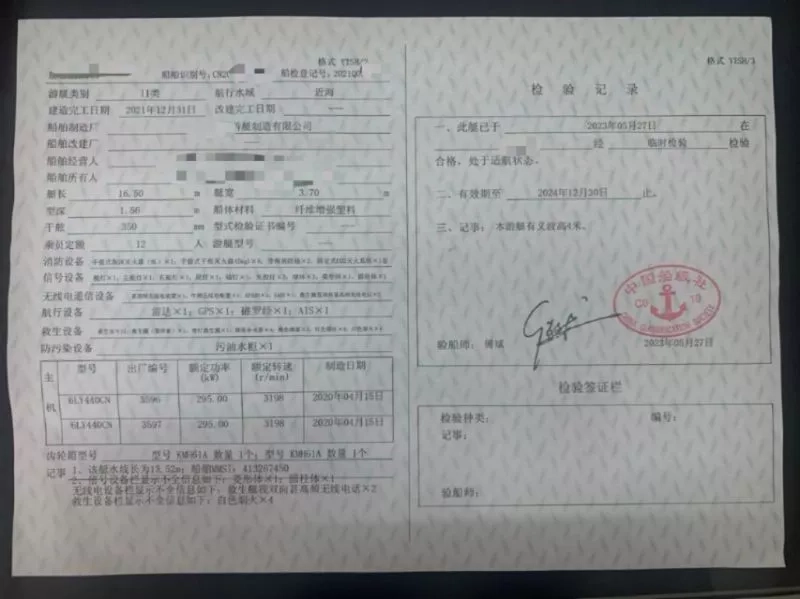 格式 YTSH/2
船舶识别号:CN20 船检登记号:2021Q0
游艇类别 II类 航行水域 近海
建造完工日期 2021年12月31日 改建完工日期 ——
船舶制造厂 游艇制造有限公司
船舶改建厂 ——
船舶经营人
船舶所有人
艇长 16.50 m 艇宽 3.70 m
型深 1.56 m 船体材料 纤维增强塑料
干舷 350 mm 型式检验证书编号 ——
乘员定额 12 人 游艇型号 ——
消防设备
信号设备
无线电通信设备
航行设备 雷达×1; GPS×1; 磁罗经×1; AIS×1
救生设备
防污染设备 污油水柜×1
主机 型号 出厂编号 额定功率(kW) 额定转速(r/min) 制造日期
6LY440CN 3596 295.00 3198 2020年04月15日
6LY440CN 3597 295.00 3198 2020年04月15日
齿轮箱型号 型号 KMH61A 数量 1个; 型号 KMH61A 数量 1个
记事 1、该艇水线长为13.52m; 船舶MMSI: 413267450
2、信号设备栏显示不全信息如下: 菱形体×1; 圆柱体×1
无线电设备栏显示不全信息如下: 救生艇筏双向甚高频无线电话×2
救生设备栏显示不全信息如下: 白色烟火×4
格式 YTSH/3
检 验 记 录
一、此艇已于 2023年05月27日 在
经 临时检验 检验
合格,处于适航状态。
二、有效期至 2024年12月30日 止。
三、记事: 本游艇有义波高4米。
中国船级社
CD 19
CHINA CLASSIFICATION SOCIETY
验船师: 傅斌 2023年05月27日
检验签证栏
检验种类: 编号:
记事:
验船师: